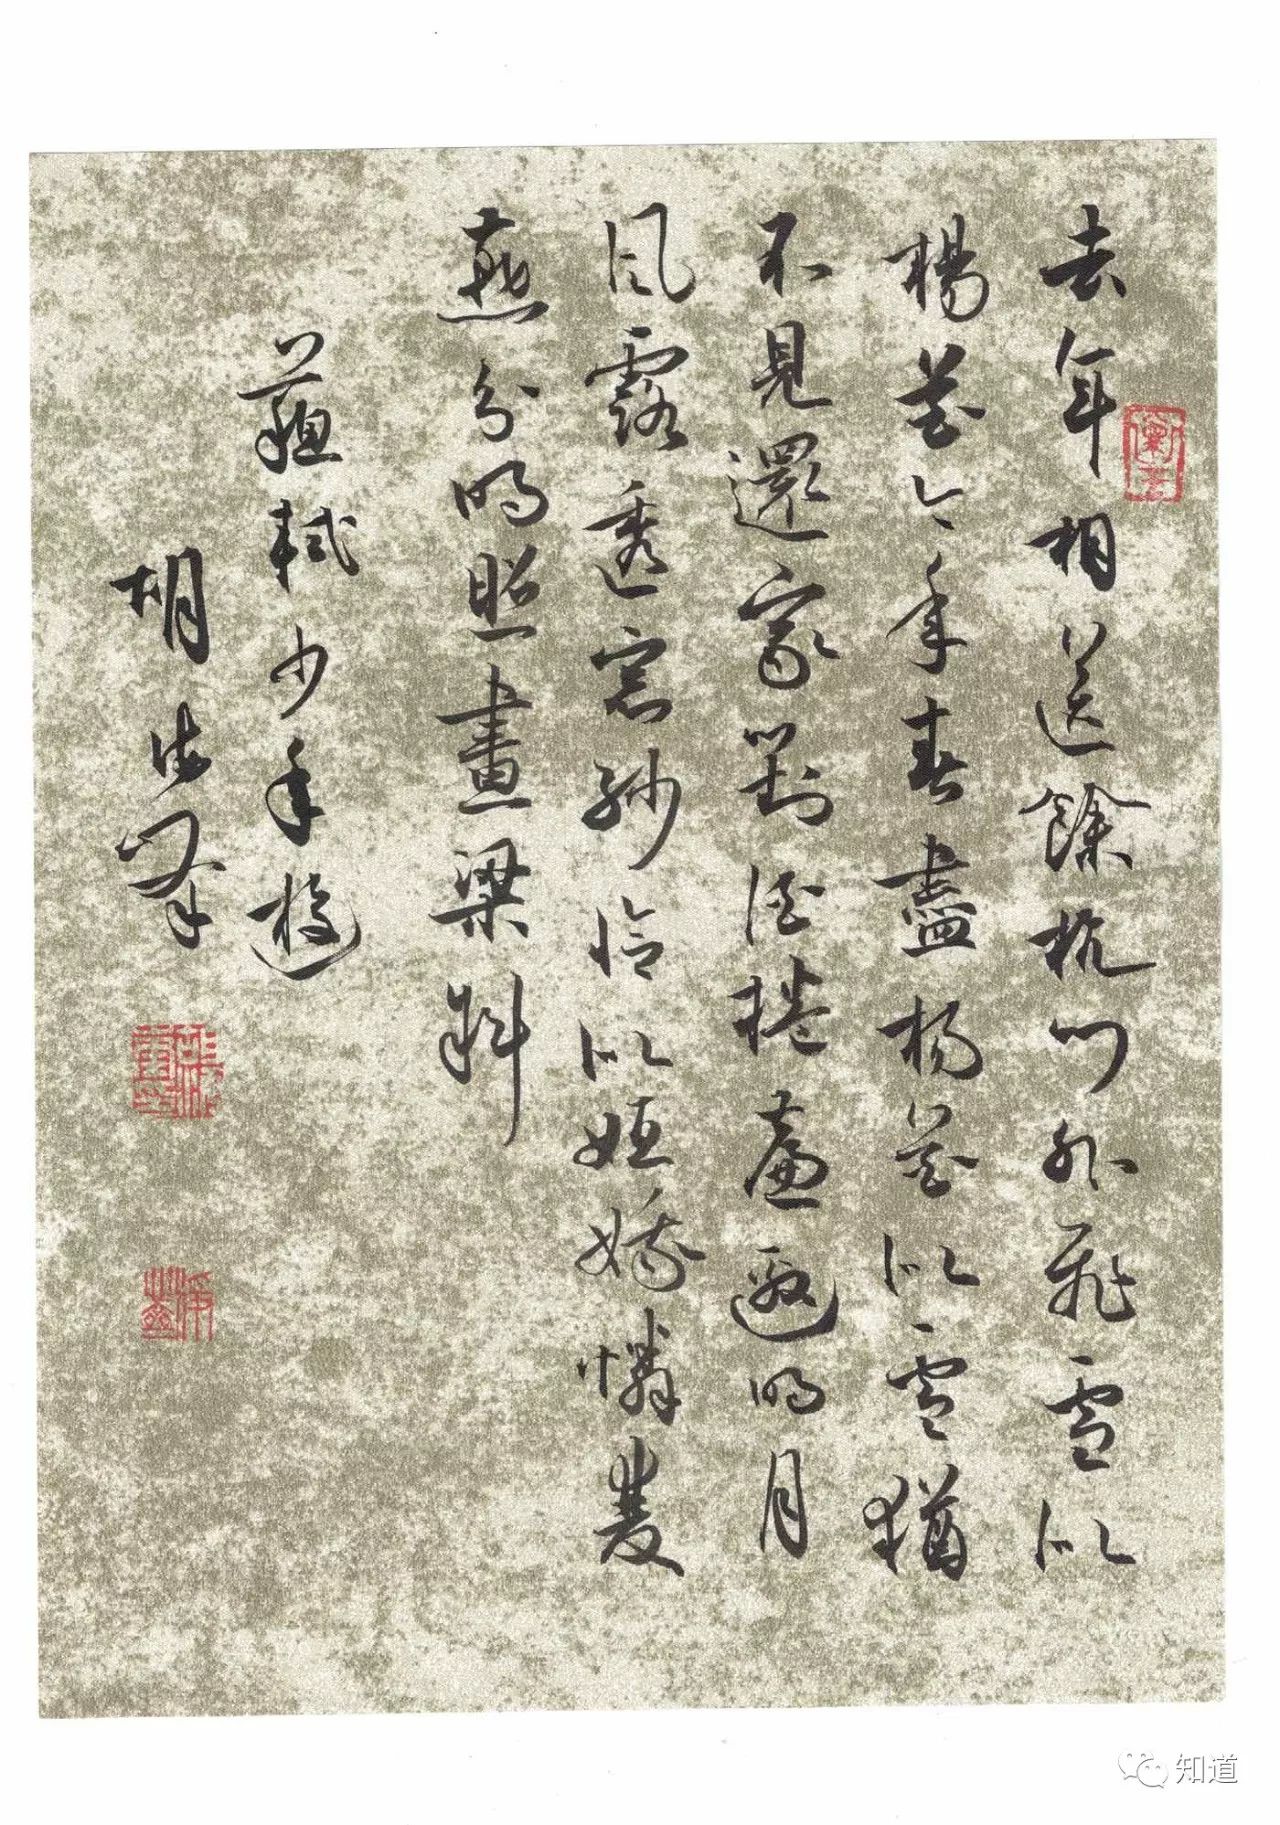 去年相送餘杭門外飛雪似
楊花今年春盡楊花似雪猶
不見還家對酒捲簾邀明月
風露透窓紗恰似姮娥憐雙
燕分明照畫梁斜
蘇軾少年遊
胡
知道